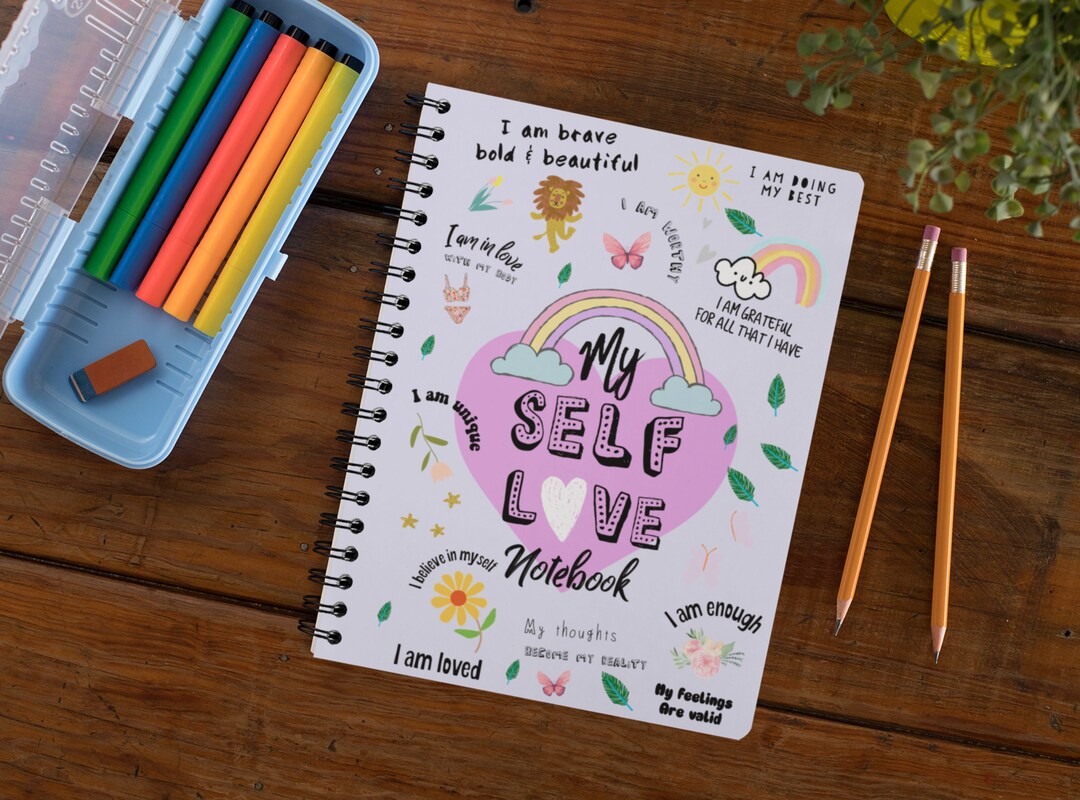 I am brave
bold & beautiful
I AM DOING
MY BEST
I AM WORTHY
I am in love
WITH MY BODY
I AM GRATEFUL
FOR ALL THAT I HAVE
My
SELF
LOVE
Notebook
I am unique
I believe in myself
I am loved
My thoughts
BECOME MY REALITY
I am enough
My Feelings
Are valid